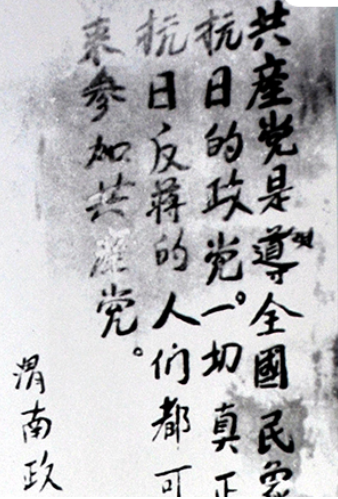 共産党是導全國民衆
抗日的政党。一切真正
抗日反蔣的人们都可
来參加共産党。
渭南政